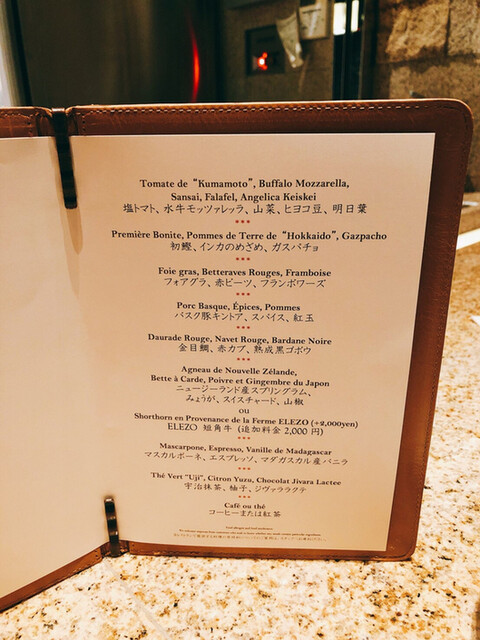 Tomate de “Kumamoto”, Buffalo Mozzarella,
Sansai, Falafel, Angelica Keiskei
塩トマト、水牛モッツァレッラ、山菜、ヒヨコ豆、明日葉
***
Première Bonite, Pommes de Terre de “Hokkaido”, Gazpacho
初鰹、インカのめざめ、ガスパチョ
***
Foie gras, Betteraves Rouges, Framboise
フォアグラ、赤ビーツ、フランボワーズ
***
Porc Basque, Épices, Pommes
バスク豚キントア、スパイス、紅玉
***
Daurade Rouge, Navet Rouge, Bardane Noire
金目鯛、赤カブ、熟成黒ゴボウ
***
Agneau de Nouvelle Zélande,
Bette à Carde, Poivre et Gingembre du Japon
ニュージーランド産スプリングラム、
みょうが、スイスチャード、山椒
ou
Shorthorn en Provenance de la Ferme ELEZO (+2,000yen)
ELEZO 短角牛 (追加料金 2,000 円)
***
Mascarpone, Espresso, Vanille de Madagascar
マスカルポーネ、エスプレッソ、マダガスカル産バニラ
***
Thé Vert “Uji”, Citron Yuzu, Chocolat Jivara Lactee
宇治抹茶、柚子、ジヴァララクテ
***
Café ou thé
コーヒーまたは紅茶